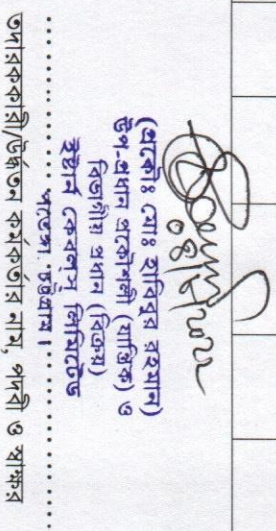 (প্রকৌঃ মোঃ হাবিবুর রহমান)
উপ-প্রধান প্রকৌশলী (যান্ত্রিক) ও
বিভাগীয় প্রধান (বিক্রয়)
ইষ্টার্ন কেবলস্ লিমিটেড
পতেঙ্গা, চট্টগ্রাম।
তদারককারি/উর্ধ্বতন কর্মকর্তার নাম, পদবী ও স্বাক্ষর